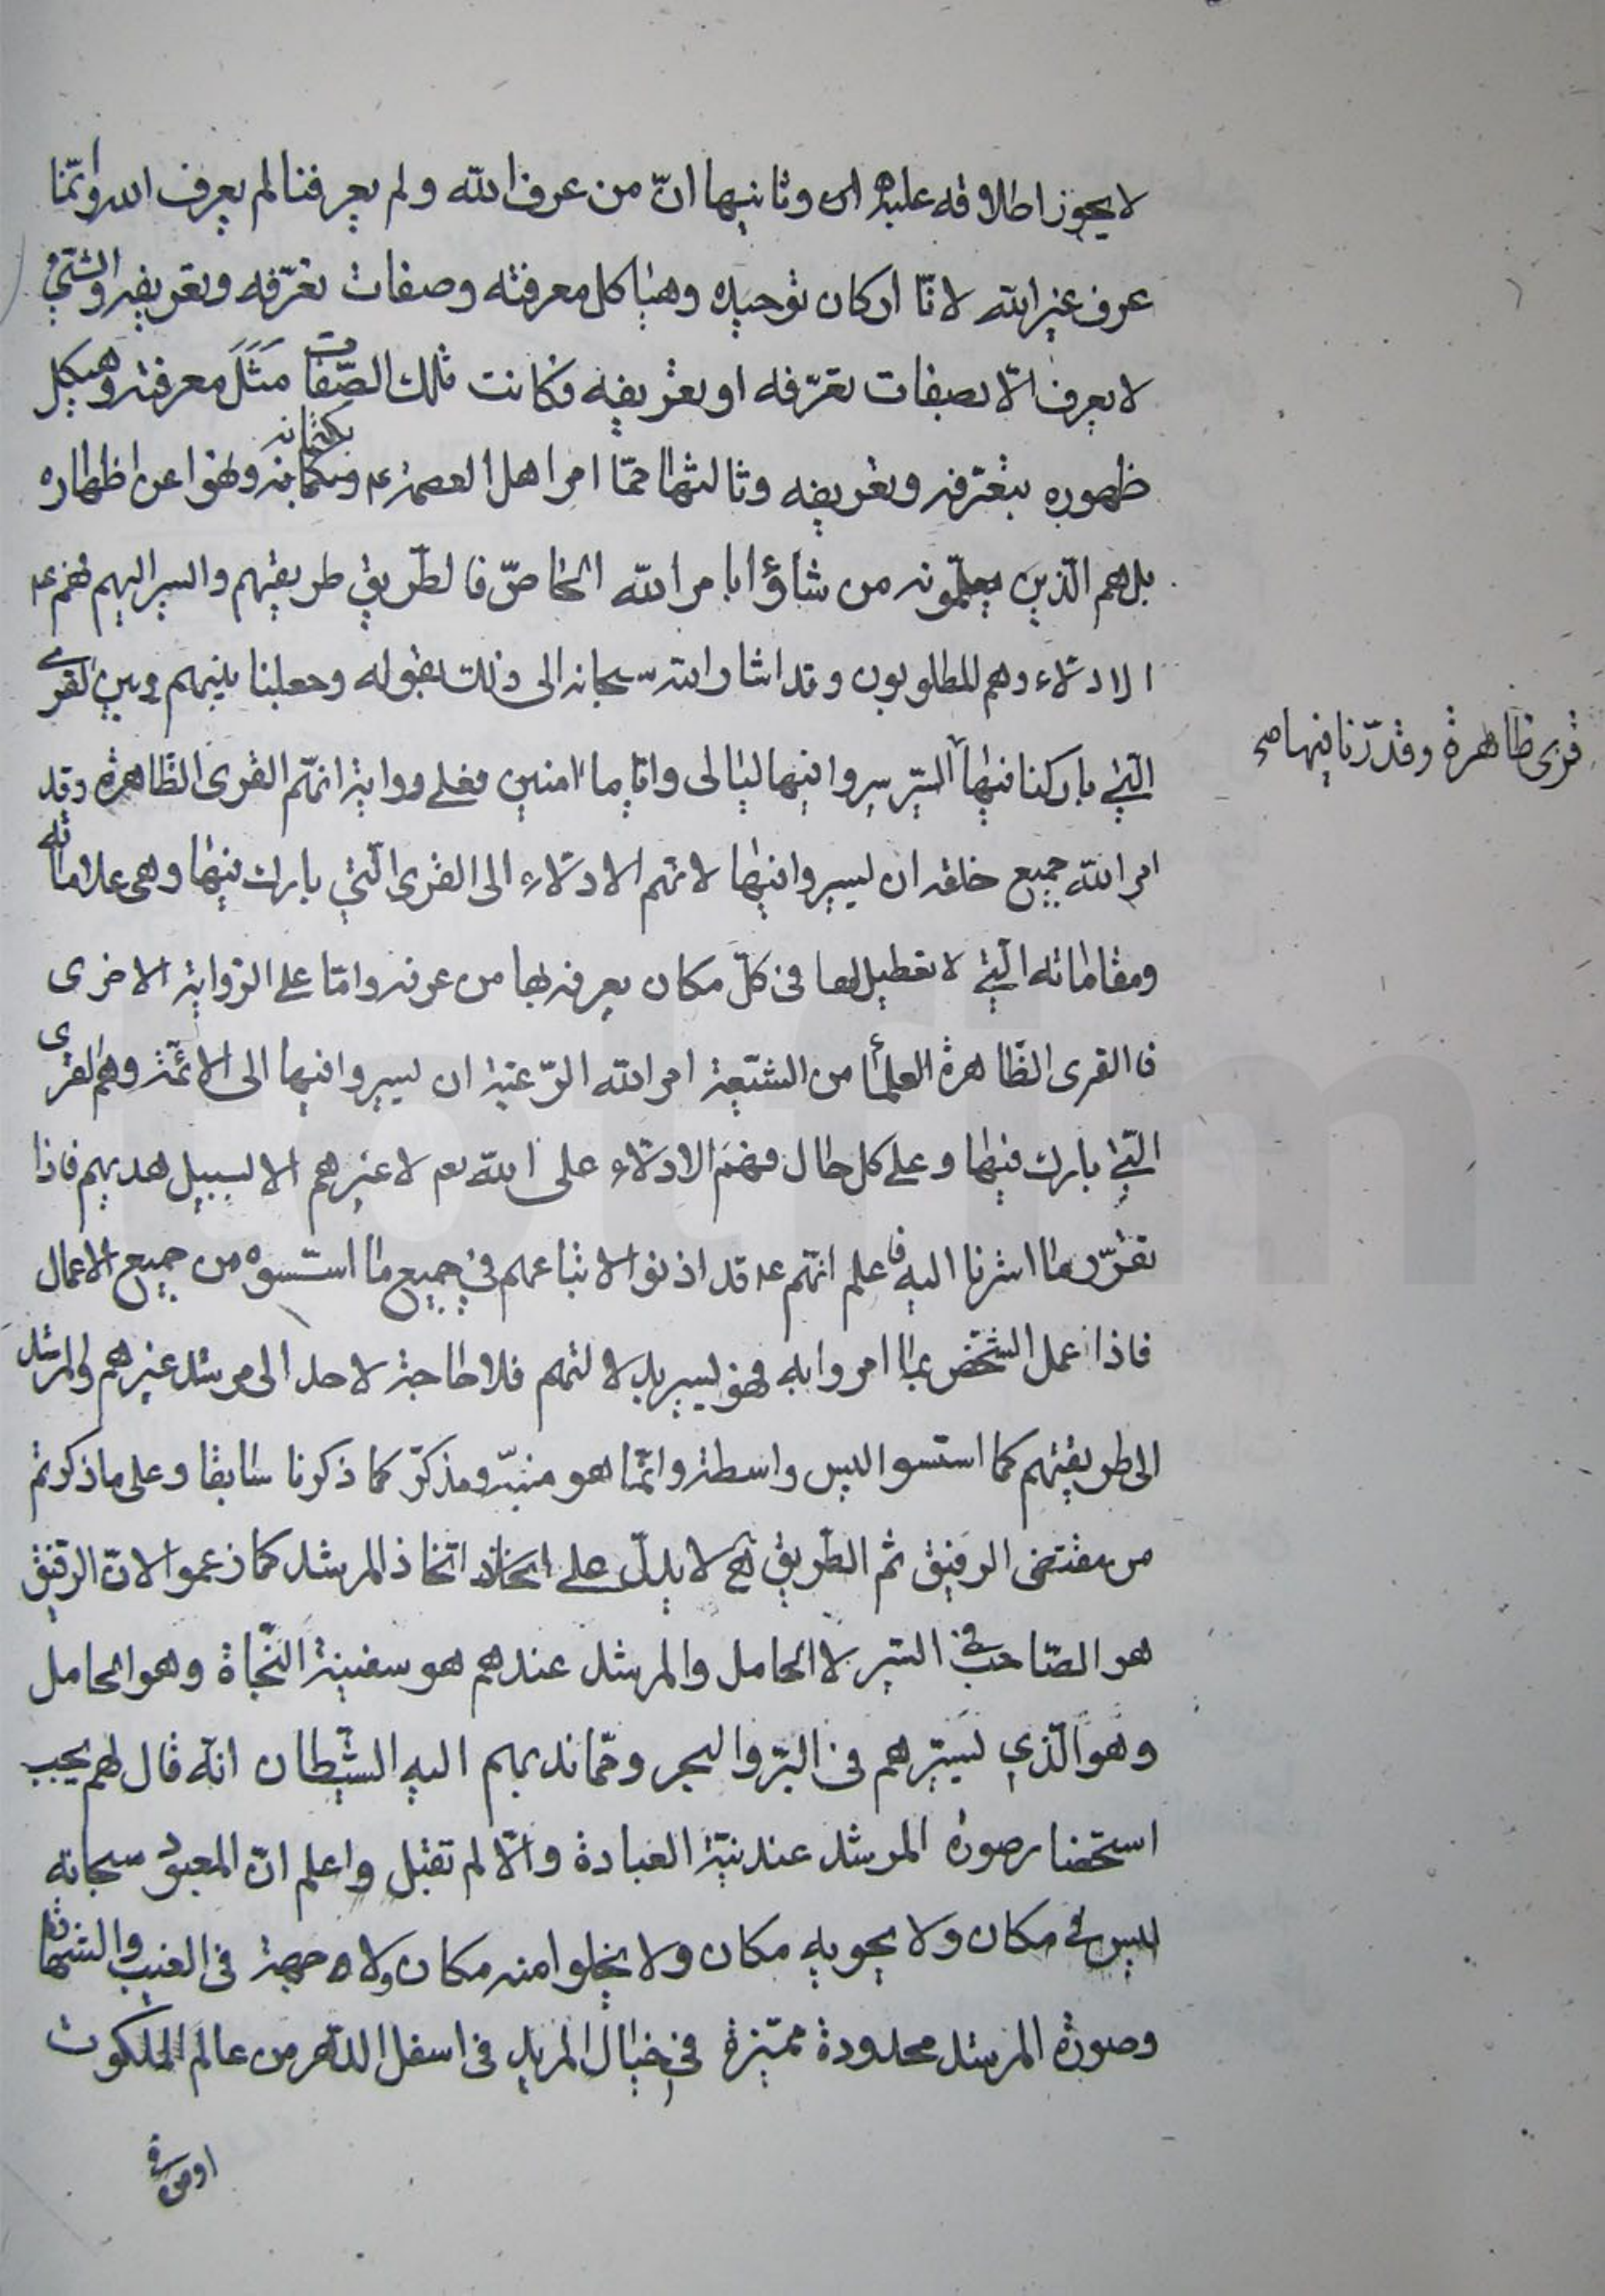 لا يجوز اطلاقه عليه اى وثانيها انّ من عرف الله ولم يعرفنا لم يعرف الله وانّما
عرف غير الله لانّا اركان توحيده وهياكل معرفته وصفات تعرّفه وتعريفه والشئ
لا يعرف الّا بصفات تعرّفه او تعريفه فكانت تلك الصّفات مَثَلَ معرفته وهيكل
ظهوره بتعرّفه وتعريفه وثالثها ممّا امر اهل العصمة عه بكتمانه ونهوا عن اظهاره
بل هم الّذين يعلّمونه من شاؤا بامر الله الخاصّ فالطّريق طريقهم والسير اليهم فهم عه
الادلّاء وهم المطلوبون وقد اشار الله سبحانه الى ذلك بقوله وجعلنا بينهم وبين القرى
التي باركنا فيها السّير سيروا فيها ليالى وايّاما امنين فعلى رواية انّهم القرى الظّاهرة وقد
قرى ظاهرة وقدّرنا فيها صح
امر الله جميع خلقه ان يسيروا فيها لانّهم الادلّاء الى القرى الّتي بارك فيها وهى علاماته
ومقاماته الّتي لا تعطيل لها فى كلّ مكان يعرفه بها من عرفه وامّا على الرّواية الاخرى
فالقرى الظّاهرة العلمأ من الشّيعة امر الله الرّعيّة ان يسيروا فيها الى الائمّة وهم القرى
الّتي بارك فيها وعلى كل حال فهم الادلّاء على الله تعم لا غيرهم الا لسبيل هديهم فاذا
تقرّر ما اشرنا اليه فاعلم انّهم عه قد اذنوا لاتباعهم في جميع ما اسّسوه من جميع الاعمال
فاذا عمل الشّخص بما امروا به فهو يسير بدلالتهم فلا حاجة لاحد الى مرشد غيرهم والمرشد
الى طريقتهم كما اسّسوا ليس واسطة وانّما هو منبّه ومذكّر كما ذكرنا سابقا وعلى ما ذكرتم
من مقتضى الرفيق ثم الطّريق لا يدلّ على اتّخاذ المرشد كما زعموا لانّ الرّفيق
هو الصّاحب فى السّير لا الحامل والمرشد عندهم هو سفينة النّجاة وهو الحامل
وهو الّذي يسيّرهم فى البرّ والبحر وممّا ندبهم اليه الشّيطان انّه قال لهم يجب
استحضار صورة المرشد عند نيّة العبادة والّا لم تقبل واعلم انّ المعبود سبحانه
ليس فى مكان ولا يحويه مكان ولا يخلوا منه مكان ولا جهة فى الغيب والشهادة
وصورة المرشد محدودة مميّزة في خيال المريد فى اسفل الدّهر من عالم الملكوت
او من